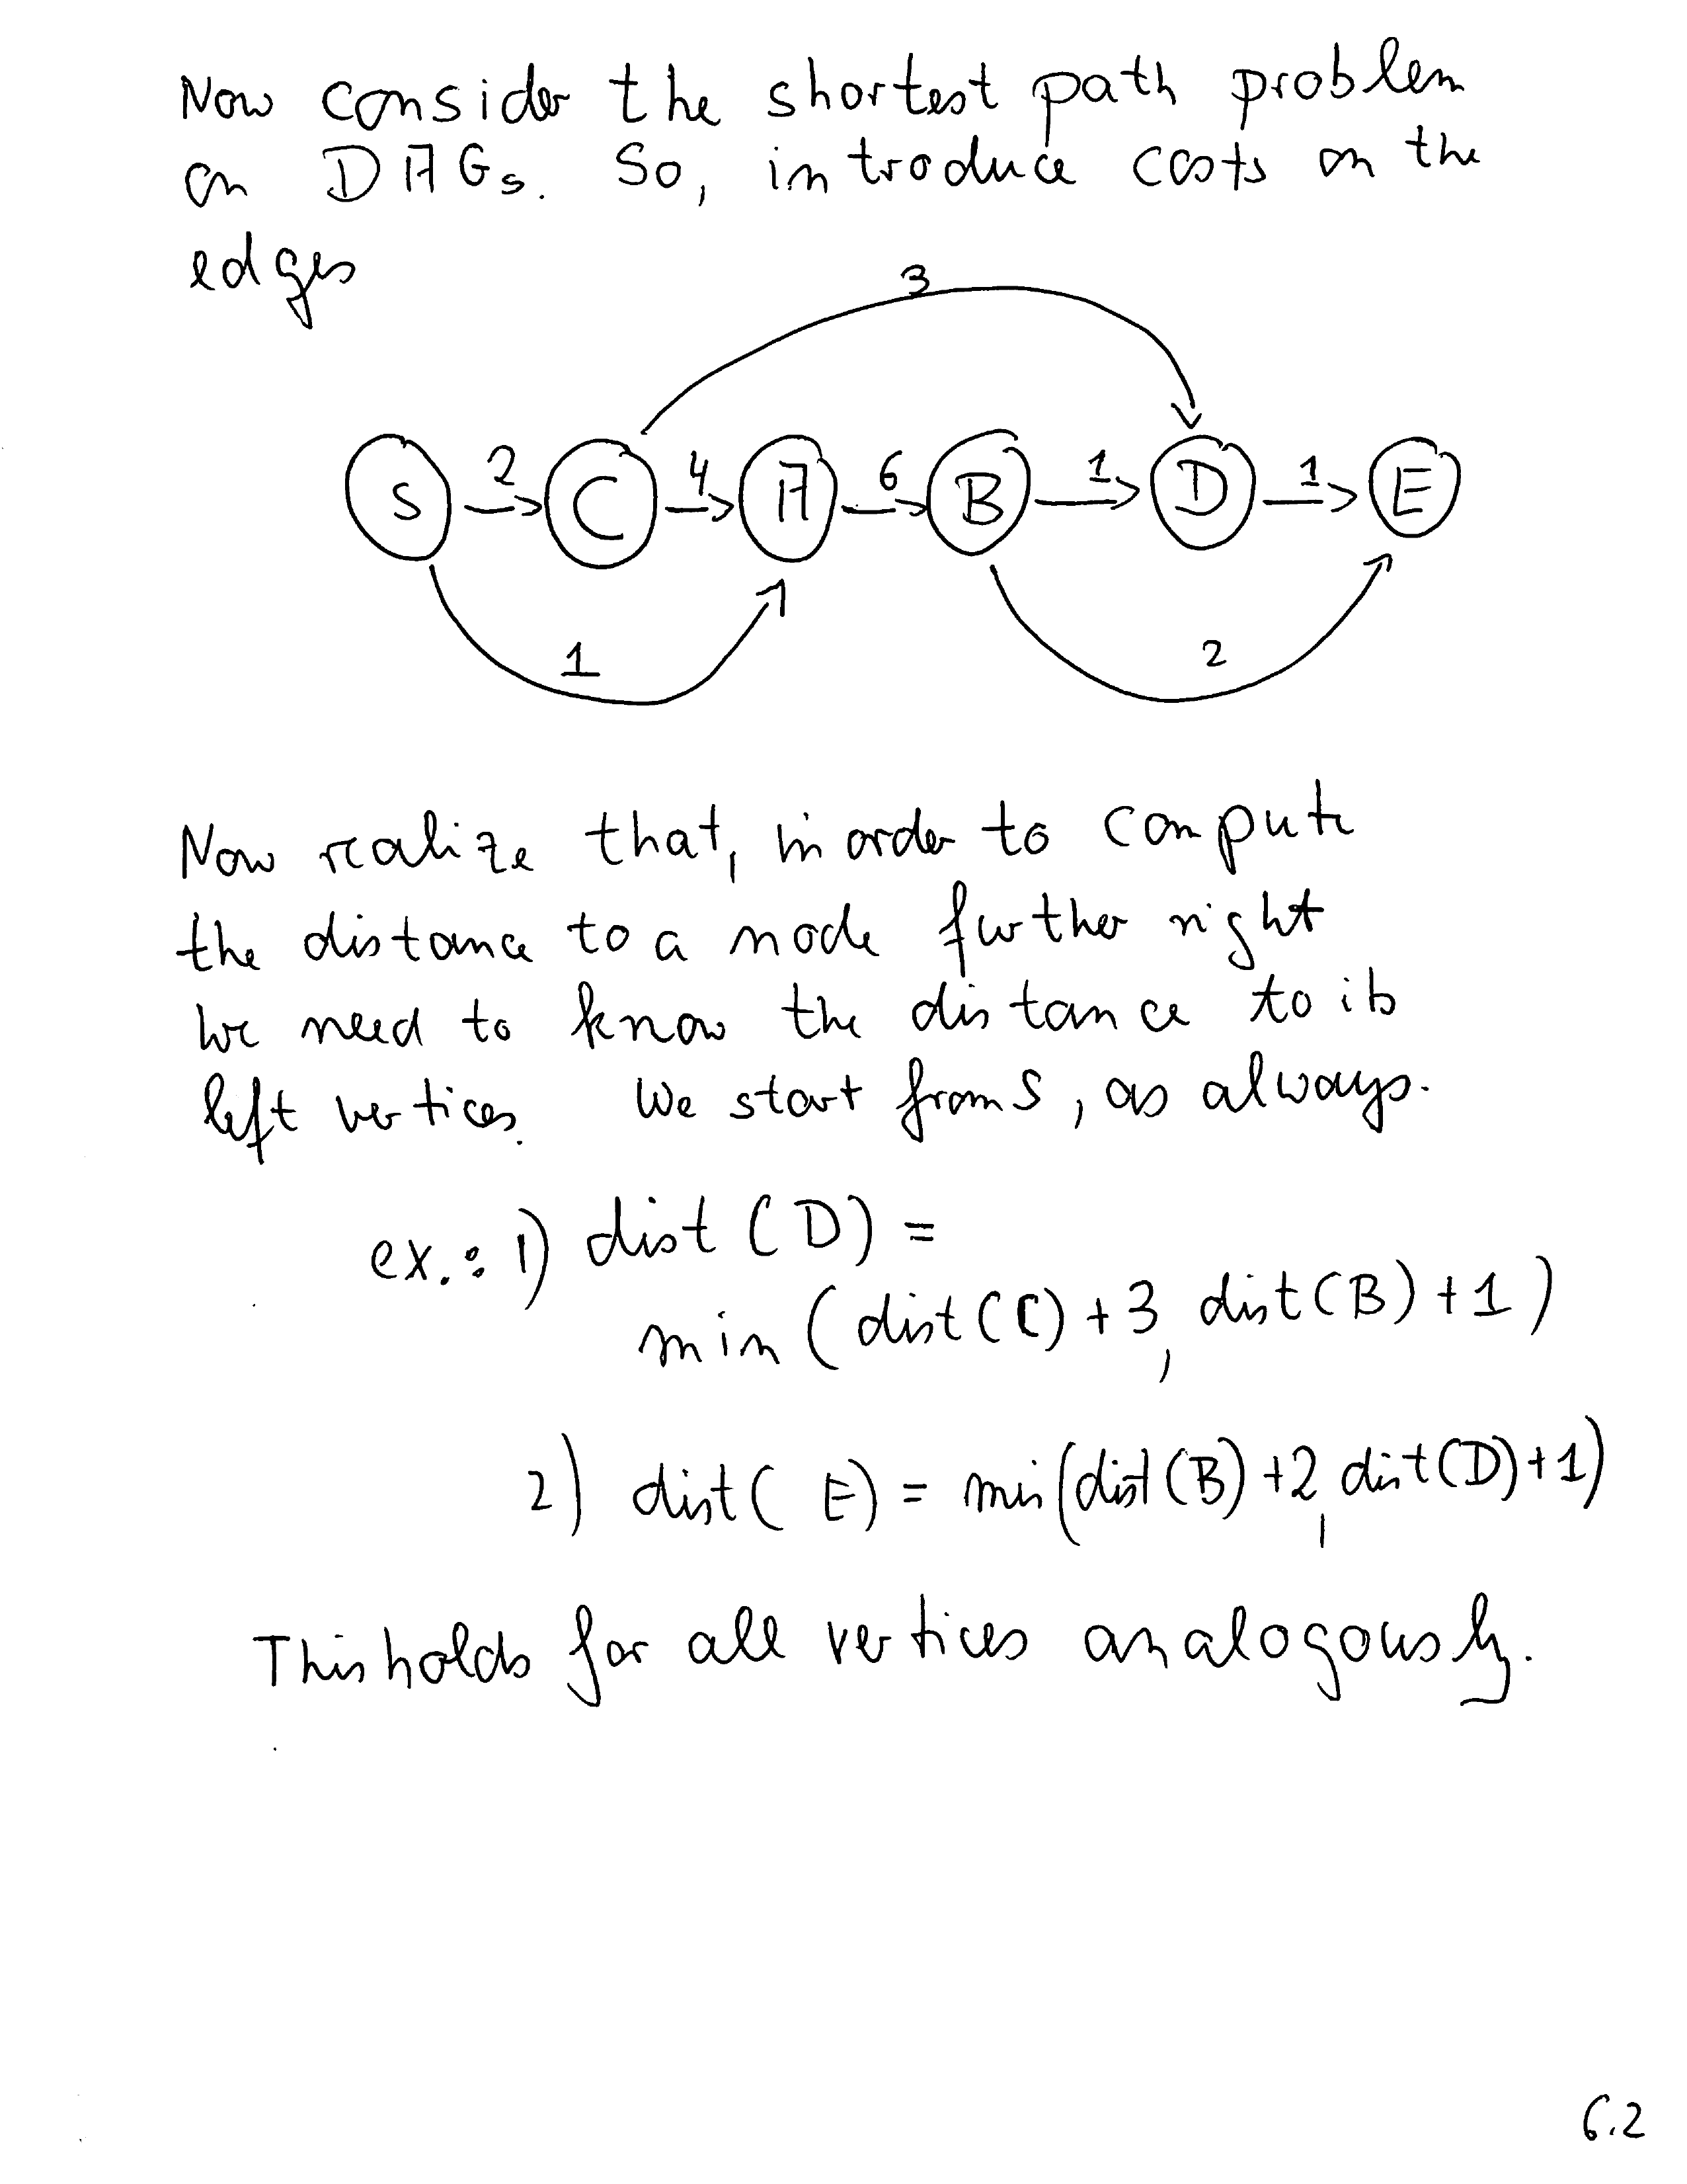 Now consider the shortest path problem
on DAGs. So, introduce costs on the
edges
3
S 2 C 4 A 6 B 1 D 1 E
1 2
Now realize that, in order to compute
the distance to a node further right
we need to know the distance to its
left vertices. We start from S, as always.
ex.: 1) dist (D) =
min ( dist(C) + 3, dist(B) + 1 )
2) dist( E) = min(dist(B) +2, dist(D)+1)
This holds for all vertices analogously.
6.2